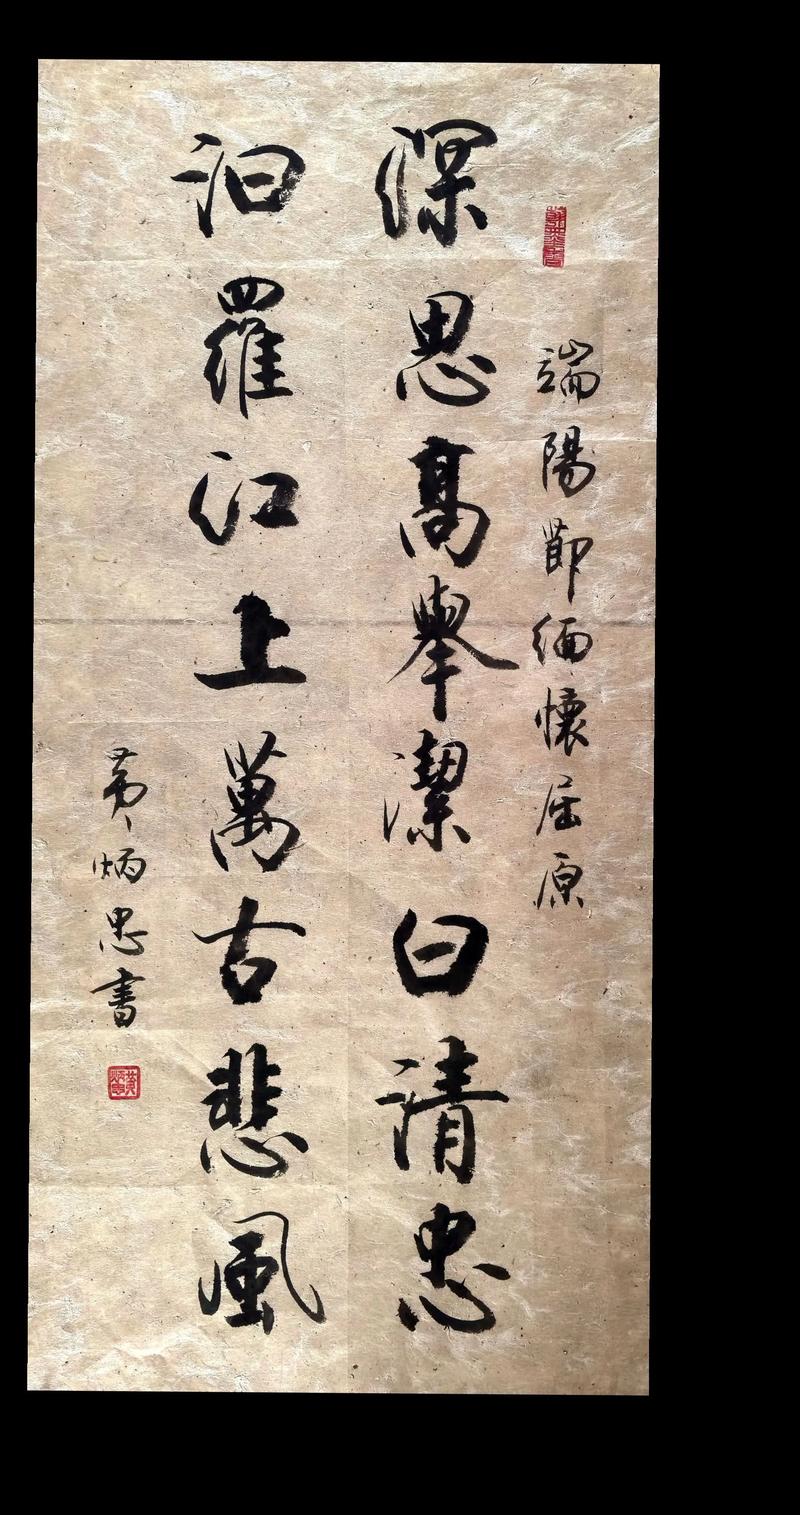 端陽節緬懷屈原
深思高舉潔曰清忠
汨羅江上萬古悲風
黄炳忠書